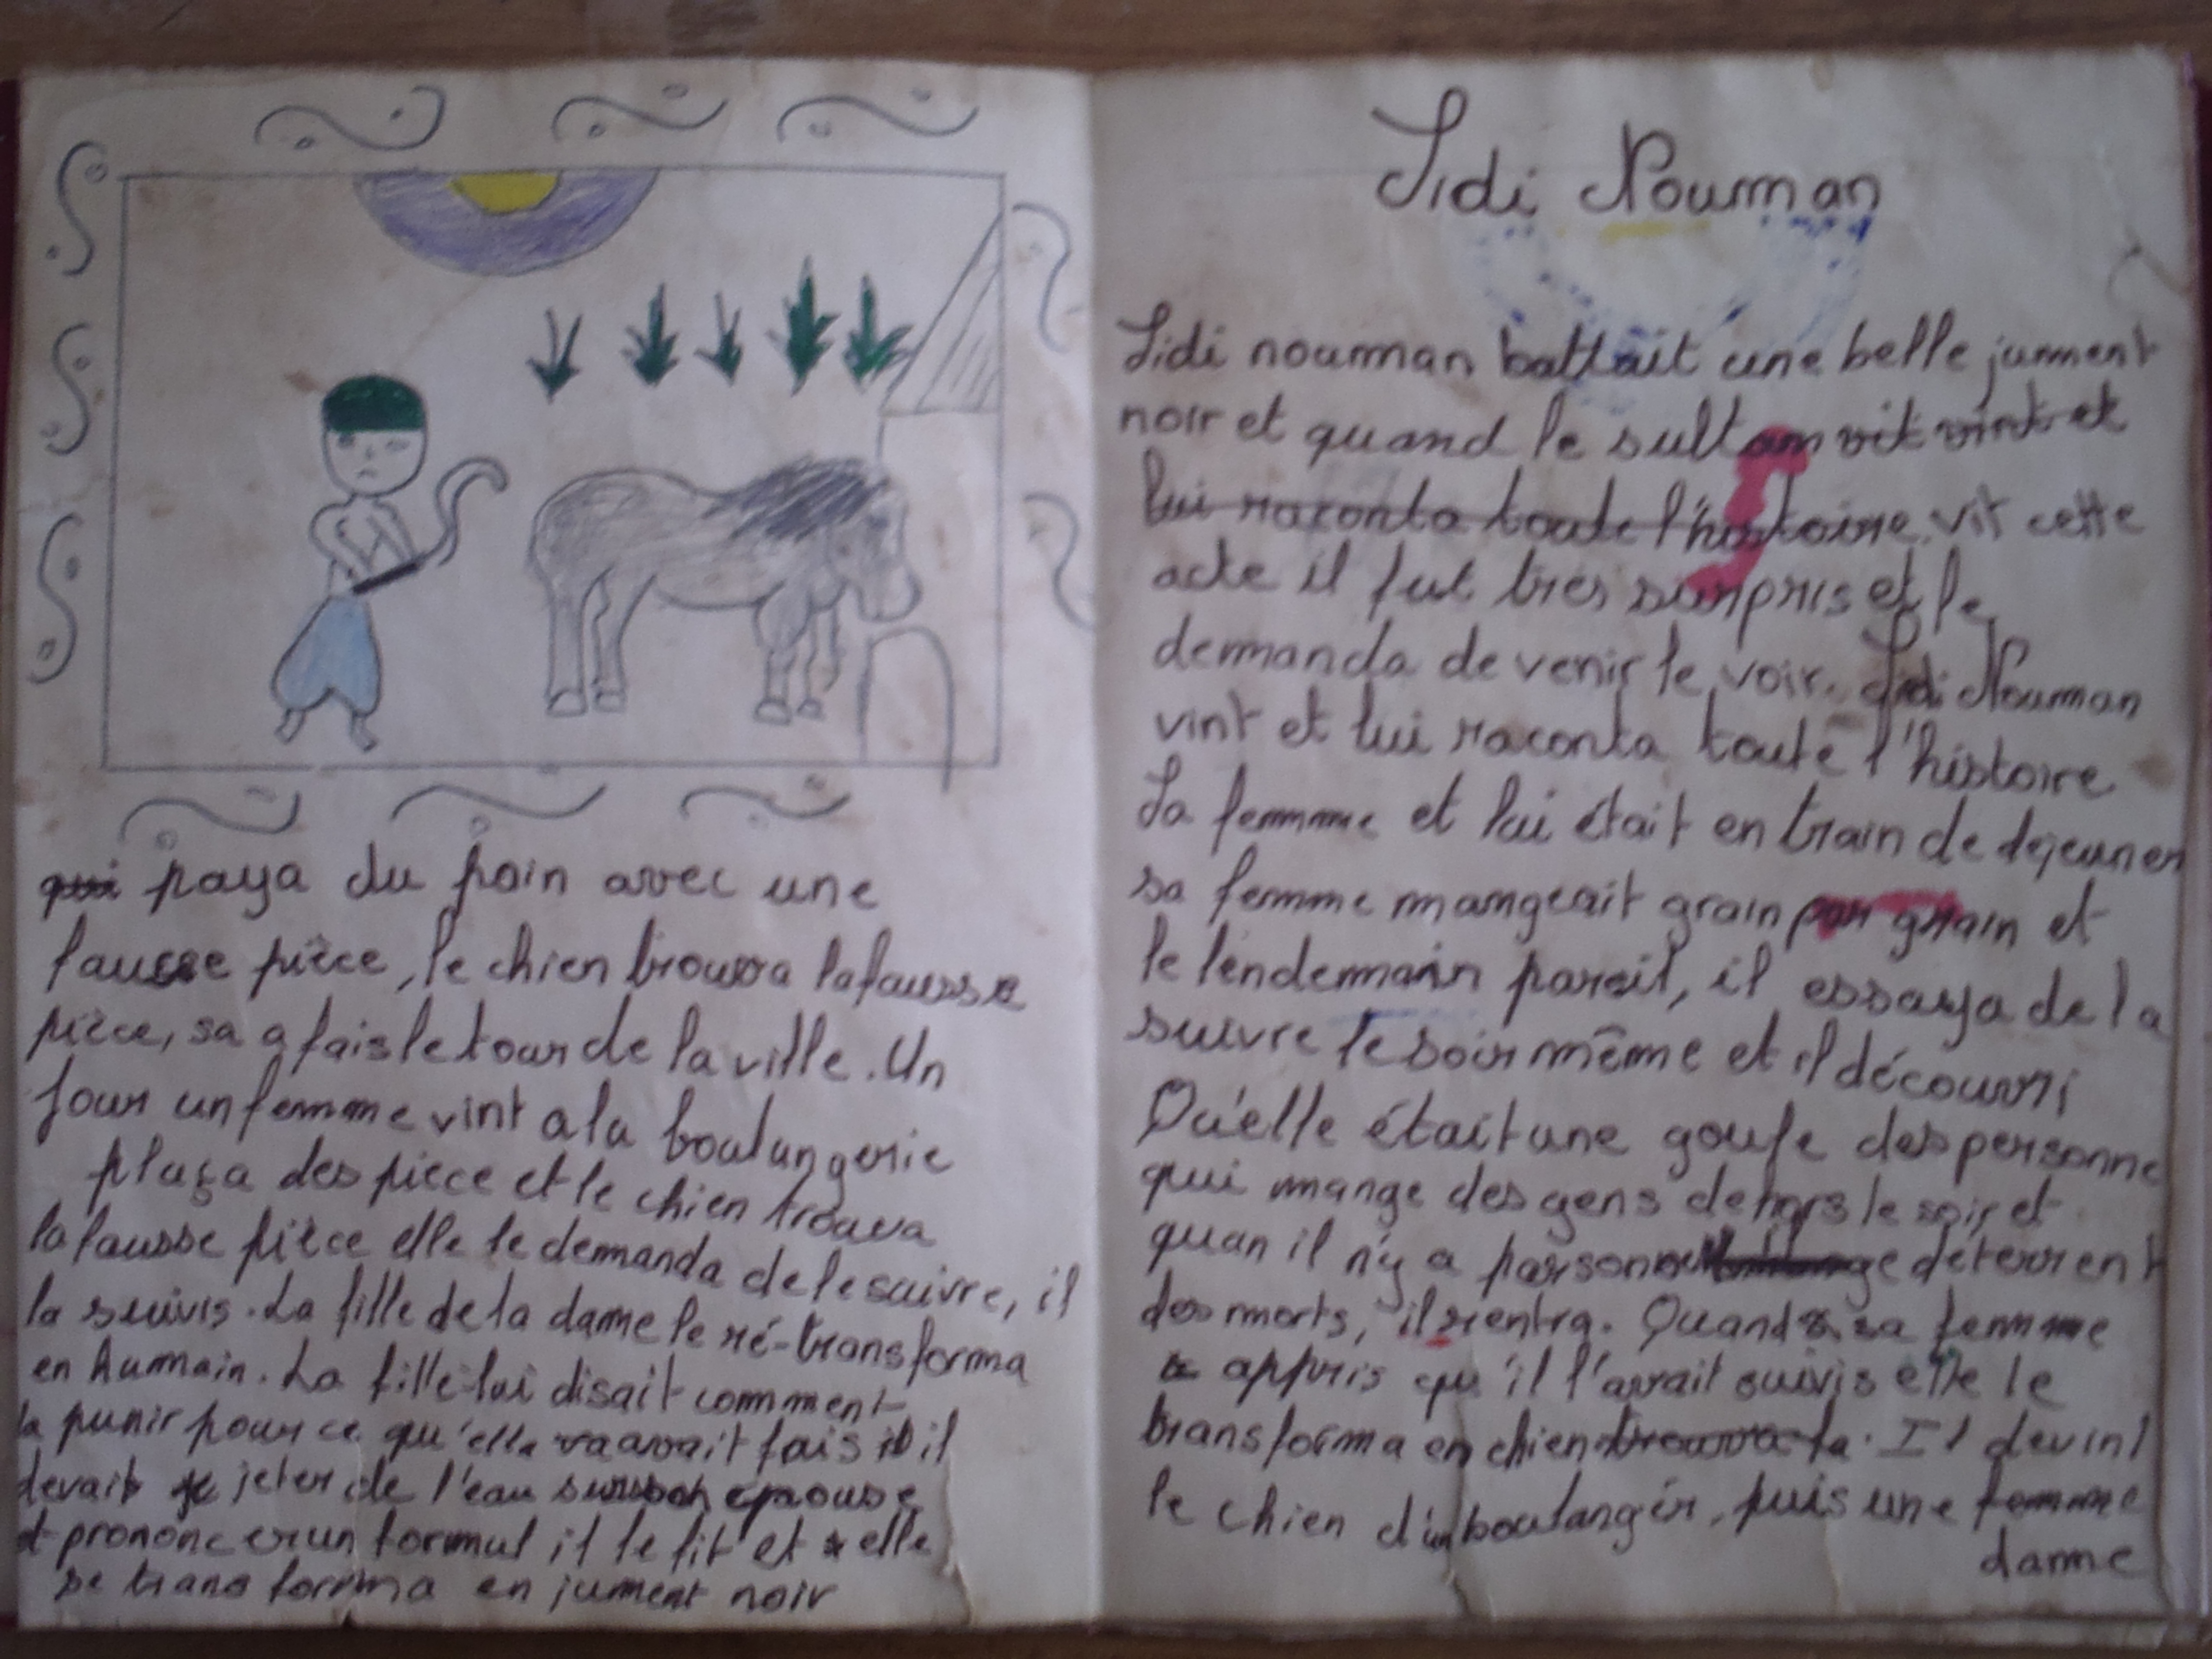 Sidi Nouman
Sidi nouman battait une belle jument
noir et quand le sultan vit vint et
lui raconta toute l'histoire vit cette
acte il fut très surpris et le
demanda de venir le voir. Sidi Nouman
vint et lui raconta toute l'histoire
Sa femme et lui était en train de dejeuner
sa femme mangeait grain par grain et
le lendemain pareil, il essaya de la
suivre le soir même et il découvri
Qu'elle était une goule des personne
qui mange des gens dehors le soir et
quan il n'y a personne déterrent
des morts, il rientra. Quand sa femme
appris qu'il l'avait suivis elle le
transforma en chien trouva la. Il devint
le chien d'un boulanger, puis une femme
dame
qui paya du pain avec une
fausse pièce, le chien trouva la fausse
pièce, sa a fais le tour de la ville. Un
Jour un femme vint a la boulangerie
plaça des piece et le chien trouva
la fausse pièce elle le demanda de le suivre, il
la suivis. La fille de la dame le ré-transforma
en humain. La fille lui disait comment
la punir pour ce qu'elle avait fais il
devait jeter de l'eau sur son épouse
et prononcer un formul il le fit et elle
se transforma en jument noir